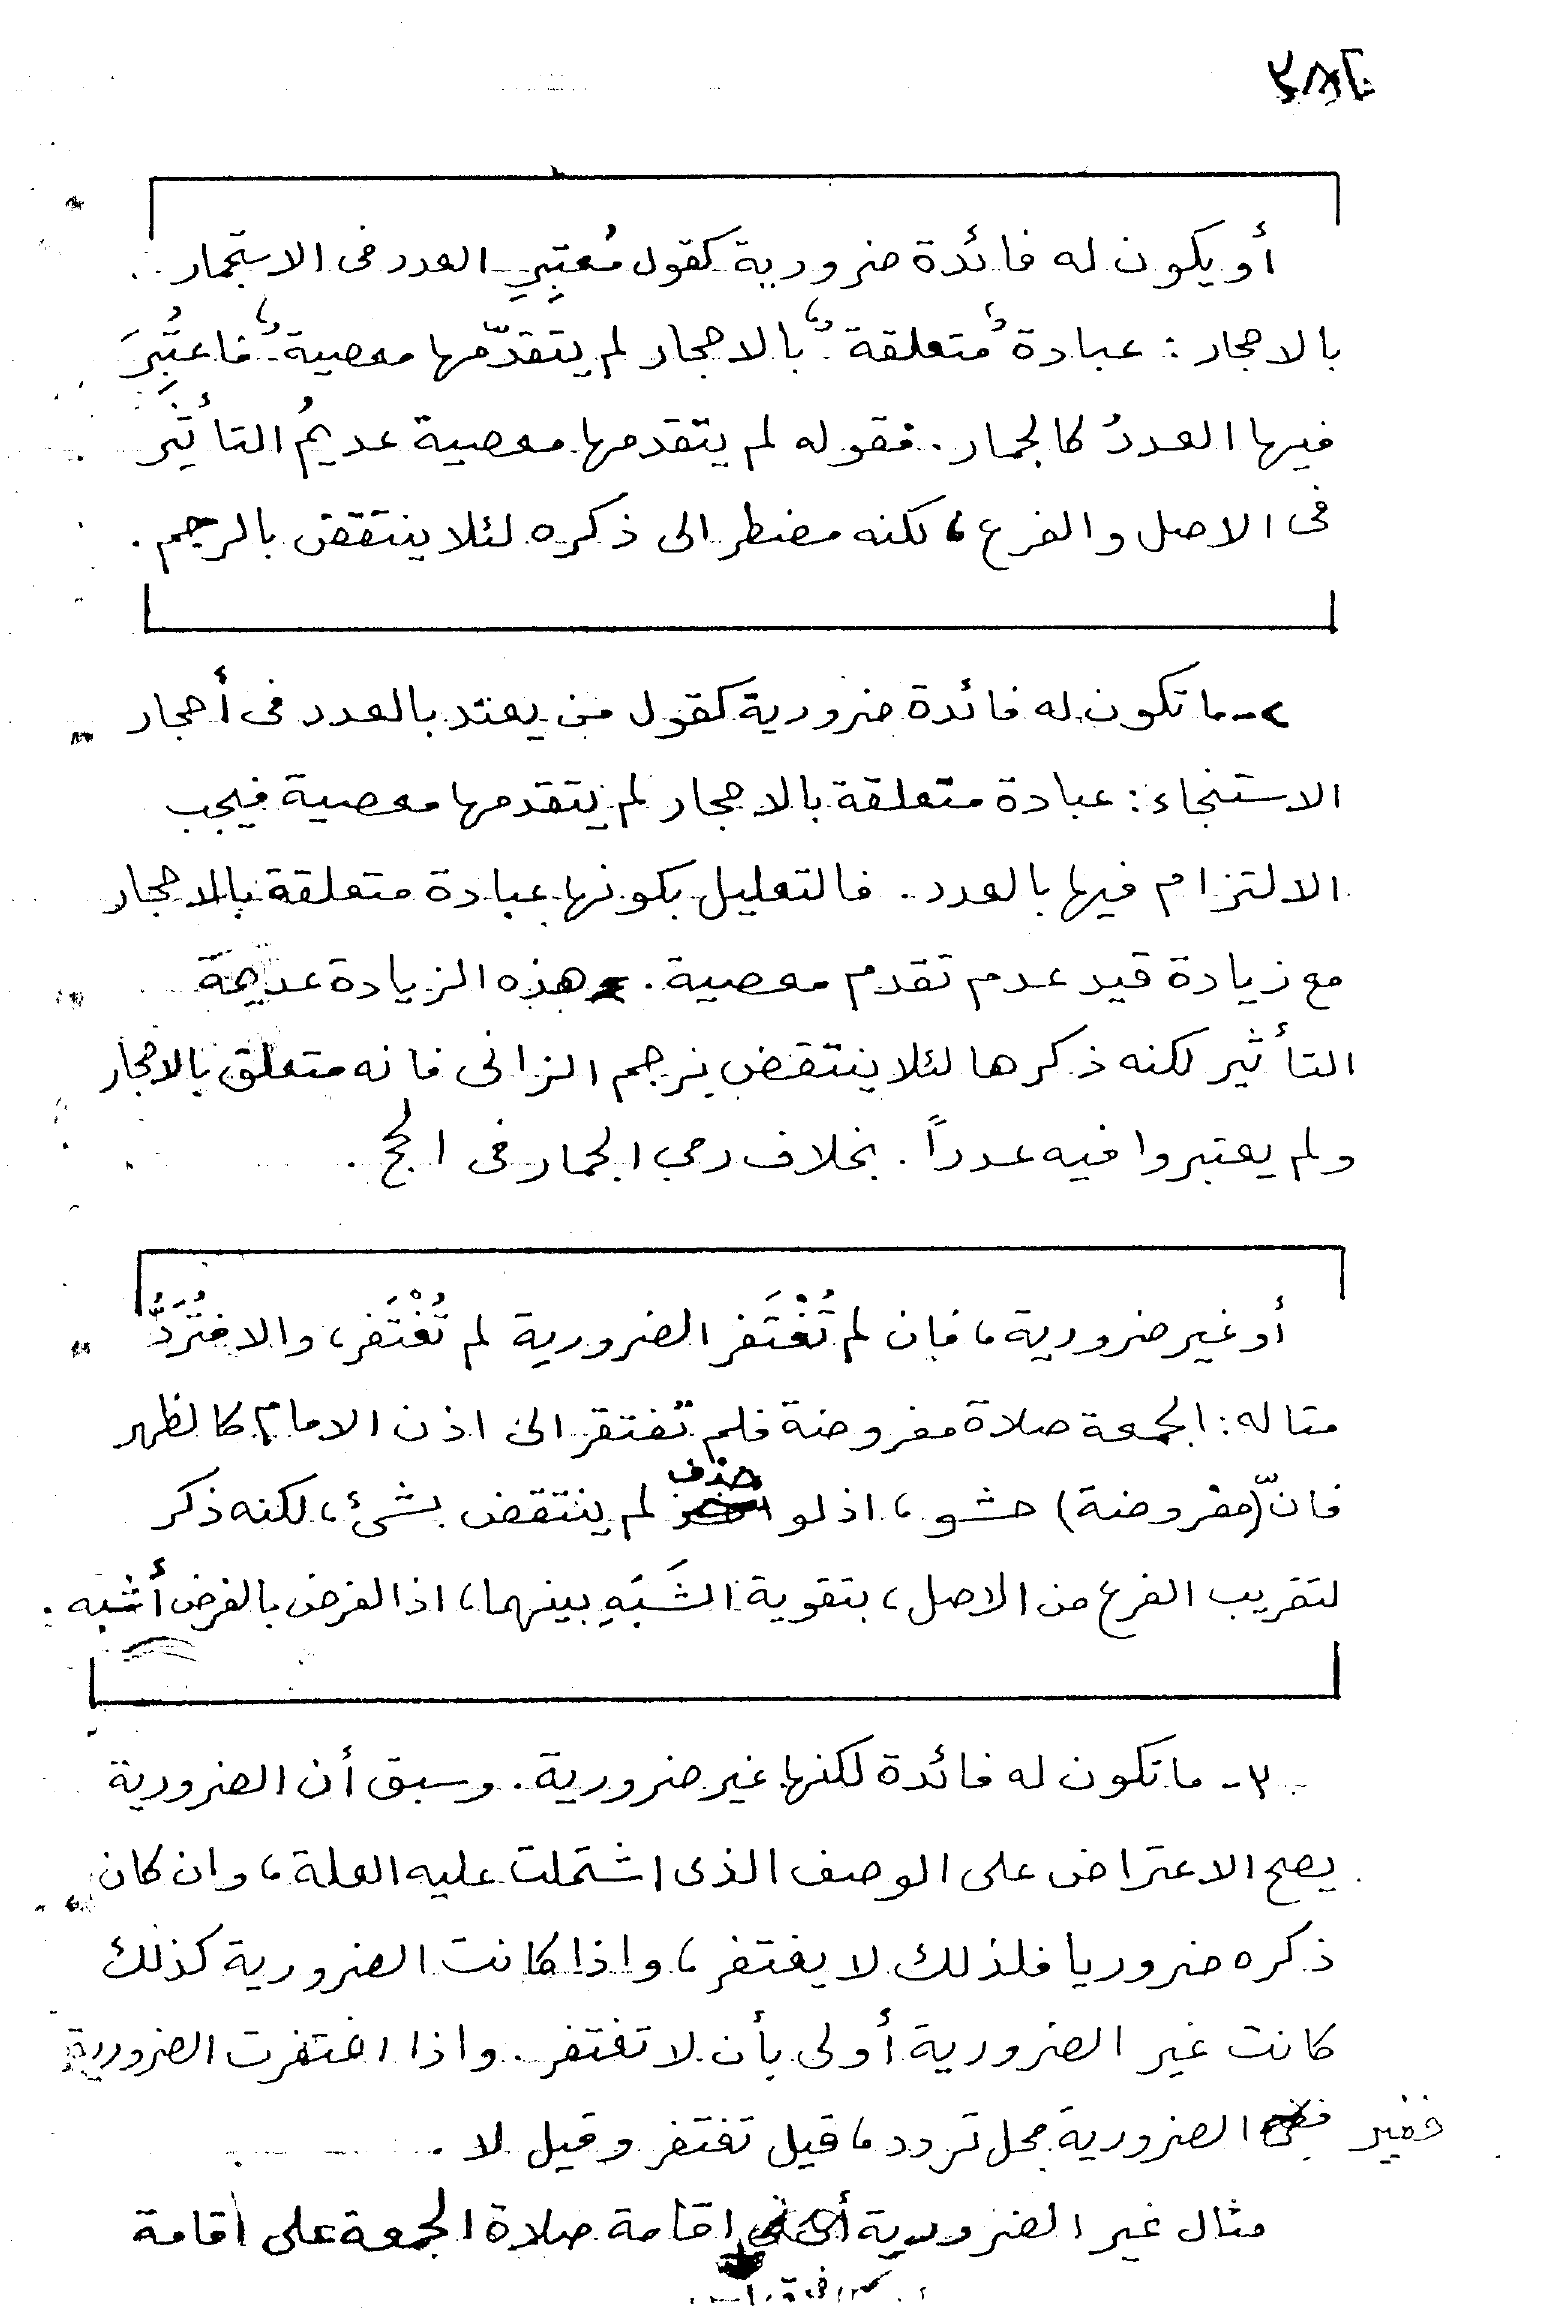 أو يكون له فائدة ضرورية كقول مُعتبِرِ العدد فى الاستجمار
بالاحجار : عبادةٌ متعلقةٌ بالاحجار لم يتقدّمها معصيةٌ فاعتُبِرَ
فيها العددُ كالجمار . فقوله لم يتقدمها معصية عديمُ التأثير
فى الاصل والفرع ، لكنه مضطر الى ذكره لئلا ينتقض بالرجم .
٢- ما تكون له فائدة ضرورية كقول من يعتد بالعدد فى أحجار
الاستنجاء : عبادة متعلقة بالاحجار لم يتقدمها معصية فيجب
الالتزام فيها بالعدد . فالتعليل بكونها عبادة متعلقة بالاحجار
مع زيادة قيد عدم تقدم معصية . وهذه الزيادة عديمة
التأثير لكنه ذكرها لئلا ينتقض برجم الزانى فانه متعلق بالاحجار
ولم يعتبروا فيه عدداً . بخلاف رمي الجمار فى الحج .
أو غير ضرورية ، فإن لم تُغْتَفر الضرورية لم تُغْتَفر ، والا فتُرَدُّد
مثاله : الجمعة صلاة مفروضة فلم تفتقر الى اذن الامام كالظهر
فانّ (مفروضة) حشو ، اذ لو حذف لم ينتقض بشئ ، لكنه ذكر
لتقريب الفرع من الاصل ، بتقوية الشَبَهِ بينهما ، اذ الفرض بالفرض أشبه .
٣- ما تكون له فائدة لكنها غير ضرورية . وسبق أن الضرورية
يصح الاعتراض على الوصف الذى اشتملت عليه العلة ، وان كان
ذكره ضروريا فلذلك لا يغتفر ، واذا كانت الضرورية كذلك
كانت غير الضرورية أولى بأن لا تغتفر . واذا اغتفرت الضرورية
فغير الضرورية محل تردد ، قيل تغتفر وقيل لا .
مثال غير الضرورية اقامة صلاة الجمعة على اقامة